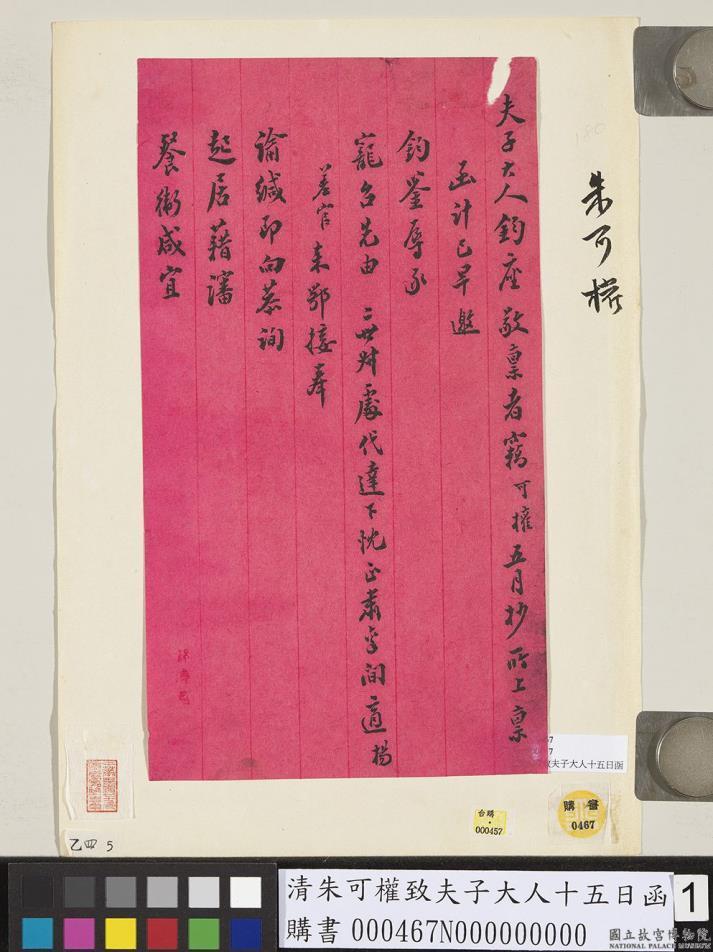 朱可權
夫子大人鈞座敬稟者竊可權五月抄所上稟
函計已早邀
鈞鑒辱承
寵召先由 世對處代達下忱正肅李間適楊
差官來鄂接奉
諭緘即向恭詢
起居藉審
餐衛咸宜
致夫子大人十五日函
台購
000457
購書
0467
乙四 5
清朱可權致夫子大人十五日函
購書000467N000000000
1
國立故宮博物院
NATIONAL PALACE MUSEUM